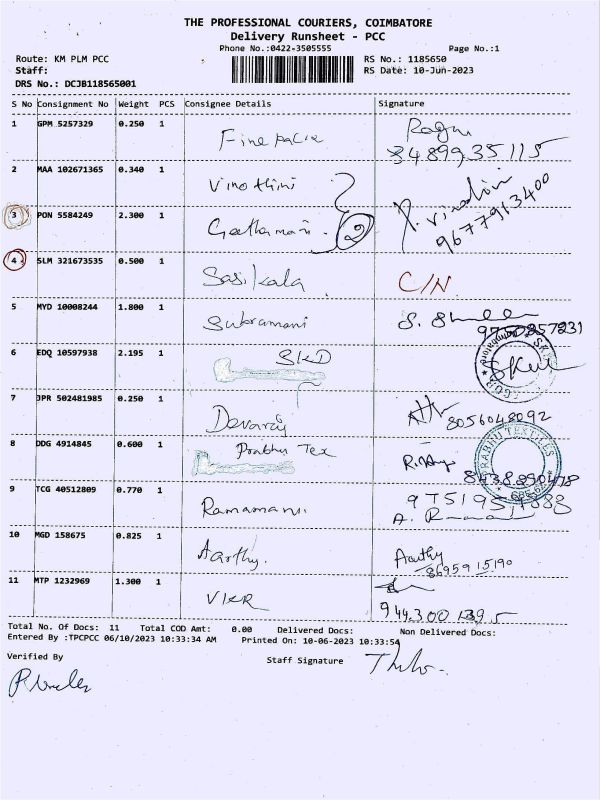 THE PROFESSIONAL COURIERS, COIMBATORE
Delivery Runsheet - PCC
Phone No.:0422-3505555 Page No.:1
Route: KM PLM PCC RS No.: 1185650
Staff: RS Date: 10-Jun-2023
DRS No.: DCJB118565001
S No Consignment No Weight PCS Consignee Details Signature
1 GPM 5257329 0.250 1
2 MAA 102671365 0.340 1 Vinothini
3 PON 5584249 2.300 1 Geethamani. 2 9677913400
4 SLM 321673535 0.500 1 Sasikala C/N
5 MYD 10008244 1.800 1 Subramani
6 EDQ 10597938 2.195 1 SKD
7 JPR 502481985 0.250 1 Devaraj 8056048092
8 DDG 4914845 0.600 1 Prabhu Tex PRABHU TEXTILES
9 TCG 40512809 0.770 1 Ramamani.
10 MGD 158675 0.825 1 Aarthy. Aarthy
8695915190
11 MTP 1232969 1.300 1 VKR
Total No. Of Docs: 11 Total COD Amt: 0.00 Delivered Docs: Non Delivered Docs:
Entered By :TPCPCC 06/10/2023 10:33:34 AM Printed On: 10-06-2023 10:33:54
Verified By Staff Signature